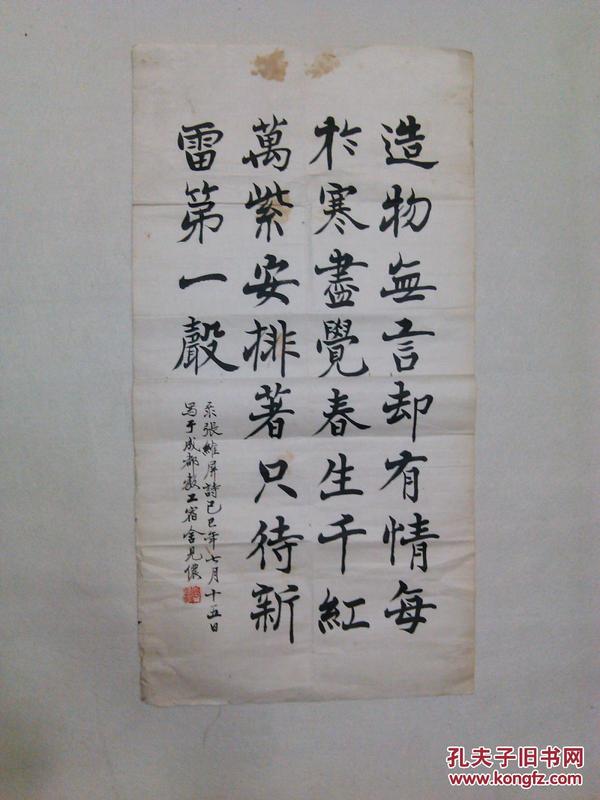 造物無言却有情每
於寒盡覺春生千紅
萬紫安排著只待新
雷第一聲
張維屏詩己巳年七月十五日
寫于成都教工宿舍
孔夫子旧书网
www.kongfz.com